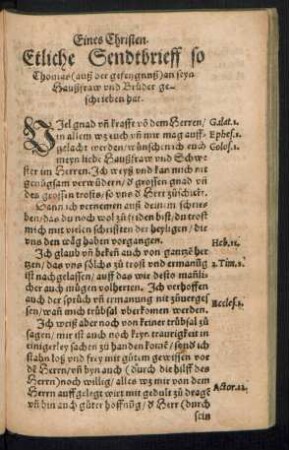 Eines Christen
Etliche Sendtbrieff so
Thomas (auß der gefengnuß) an seyn
Haußfraw vnd Brüder ge-
schrieben hat.
VIel gnad vñ kraffe võ dem Herren/ Galat.1.
in allem wz euch vñ mir mag auff- Ephes.1.
gelacht werden/wünschen ich euch Colos.1.
meyn liebe Haußfraw vnd Schwe-
ster im Herren. Ich weyß vnd kan mich nit
genügsam verwüdern/ď grossen gnad vñ
des grossen trosts/so vns ď Herr züschickt.
Dann ich vernemen auß deinem schrei-
ben/das du noch wol zü friden bist/du trost
mich mit vielen schrifften der heyligen/die
vns den wäg haben vorgangen. Heb.11.
Ich glaub vñ beken auch von gantzẽ her
tzen/das vns sölchs zü trost vnd ermanũg 2.Tim.2.
ist nachgelassen/auff das wie desto mañli-
cher auch mügen volherten. Ich verhoffen
auch der sprüch vñ ermanung nit züuerges
sen/wañ mich trübsal vberkomen werden. Eccles.1.
Ich weiß aber noch von keiner trübsal zü
sagen/mir ist auch noch keyn traurigkeit in
einigerley sachen zü handen komẽ/seynd ich
stahn loß vnd frey mit gütem gewissen vor
dẽ Herrn/vñ byn auch (durch die hilff des
Herrn) noch willig/alles wz mir von dem
Herrn auffgelegt wirt mit gedult zü dragẽ Actor.21.
vñ bin auch güter hoffnũg/ď Herr (durch
sein